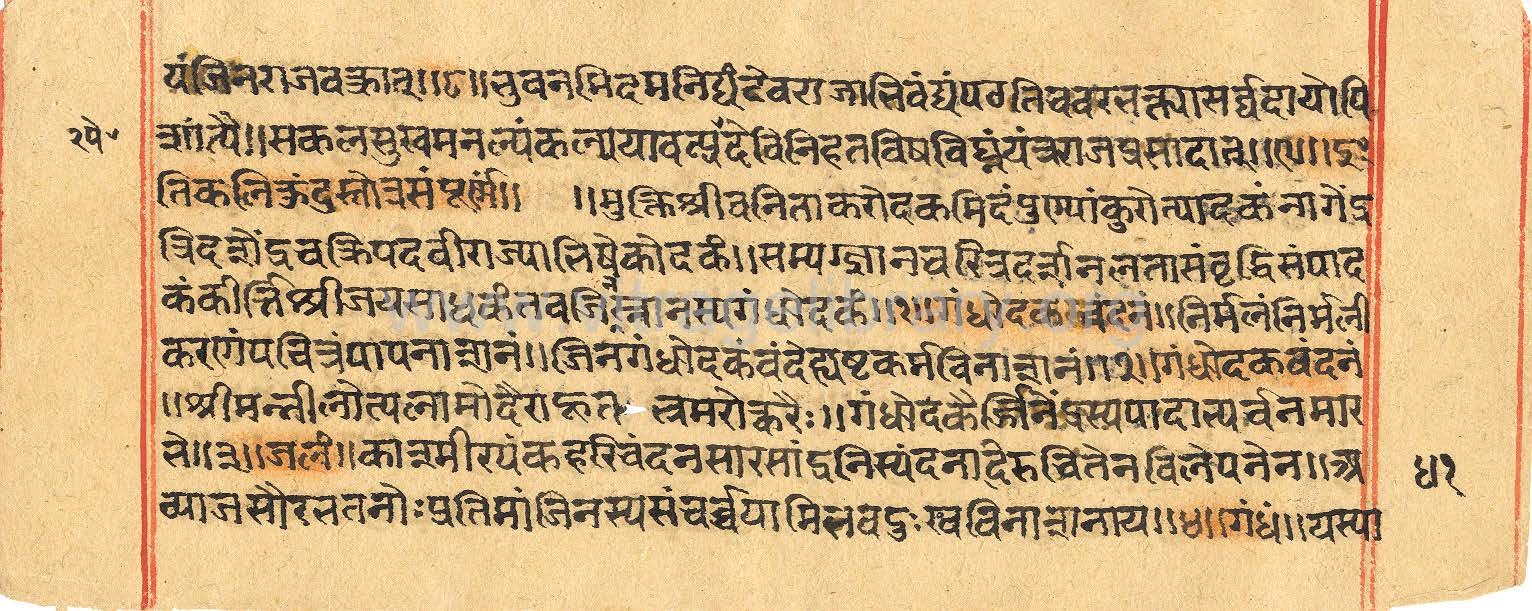 यं जिनराजवक्रात् ॥८॥ भुवनमिदमनिद्यं देवराजाभिवंद्यं पठति च वरभक्त्या सर्वदा योपि
शांत्यै ॥ सकलसुखमनल्पं कल्पयावत्प्रदे विनिहतविषविघ्नं यंत्रराजप्रसादात् ॥९॥ इ
ति कलिकुंदुस्तोत्रसंपूर्णं ॥ ॥ मुक्तिश्रीवनिताकरोदकमिदं पुण्यांकुरोत्पादकं नागेंद्र
त्रिदशेंद्रचक्रिपदवीराज्याभिषेकोदकं ॥ सम्यग्ज्ञानचरित्रदर्शनलतासंवृद्धिसंपाद
कं कीर्तिश्रीजयसाधकं तव जिनस्नानस्य गंधोदकं ॥१॥ गंधोदकवंदनं ॥ निर्मलं निर्मली
करणं पवित्रं पापनाशनं ॥ जिनगंधोदकं वंदे ह्यष्टकर्मविनाशनं ॥२॥ गंधोदकवंदनं
॥ श्रीमन्नीलोत्पलामोदैराहूत भ्रमरोत्करैः ॥ गंधोदकैर्जिनेंद्रस्य पादाभ्यर्चनमार
भे ॥३॥ जलं ॥ काश्मीरपंकहरिचंदनसारसांद्रनिस्यंदनादिरुचितेन विलेपनेन ॥ अ
व्याजसौरभतनोः प्रतिमां जिनस्य संचर्चयामि भवदुःखविनाशनाय ॥४॥ गंधं ॥ यस्या